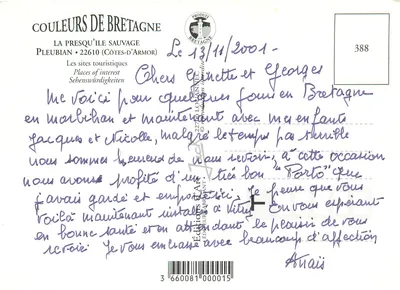 COULEURS DE BRETAGNE
LA PRESQU'ILE SAUVAGE
PLEUBIAN • 22610 (CÔTES-D'ARMOR)
Les sites touristiques
Places of interest
Sehenswürdigkeiten
BRETAGNE
388
Le 13/11/2001 -
Chers Ginette et Georges
Me voici pour quelques jours en Bretagne
en morbihan et maintenant avec mes enfants
Jacques et Nicolle, malgré le temps pas terrible
nous sommes heureux de nous revoir, à cette occasion
nous avons profité d'un très bon "Porto" que
j'avais gardé et emporté ici, Je pense que vous
voilà maintenant installés à Vitry En vous espérant
en bonne santé et en attendant le plaisir de vous
revoir Je vous embrasse avec beaucoup d'affection
Anaïs
3 660081 000015